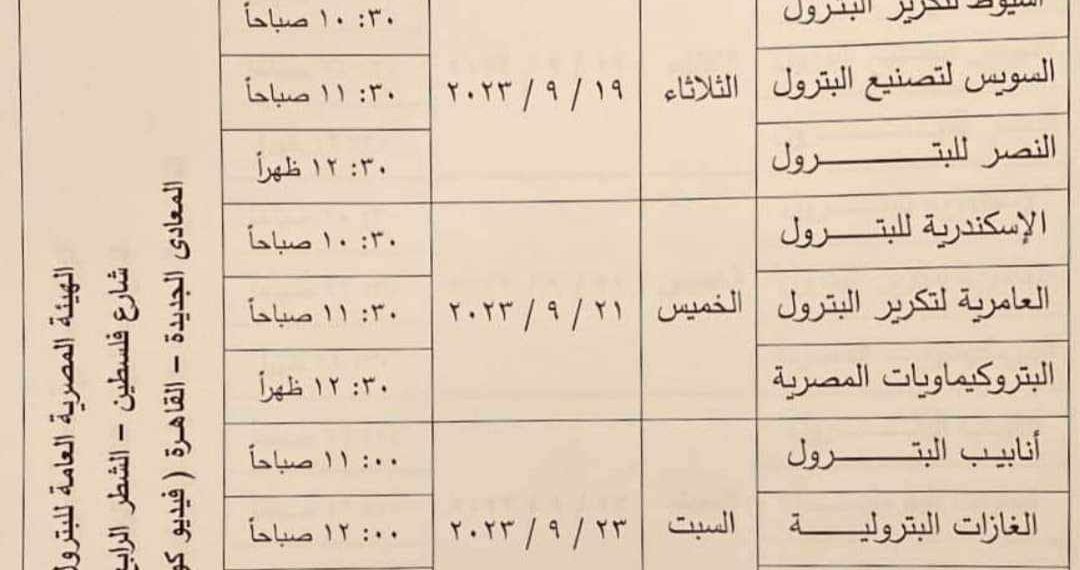 أسيوط لتكرير البترول ١٠:٣٠ صباحاً
السويس لتصنيع البترول الثلاثاء ١٩ / ٩ / ٢٠٢٣ ١١:٣٠ صباحاً
النصر للبتــــــــــرول ١٢:٣٠ ظهراً
الإسكندرية للبتـــــرول ١٠:٣٠ صباحاً
العامرية لتكرير البترول الخميس ٢١ / ٩ / ٢٠٢٣ ١١:٣٠ صباحاً
البتروكيماويات المصرية ١٢:٣٠ ظهراً
أنابيب البتــــــــرول ١١:٠٠ صباحاً
الغازات البتروليـــــة السبت ٢٣ / ٩ / ٢٠٢٣ ١٢:٠٠ صباحاً
الهيئة المصرية العامة للبترول
شارع فلسطين – الشطر
المعادى الجديدة – القاهرة ( فيديو